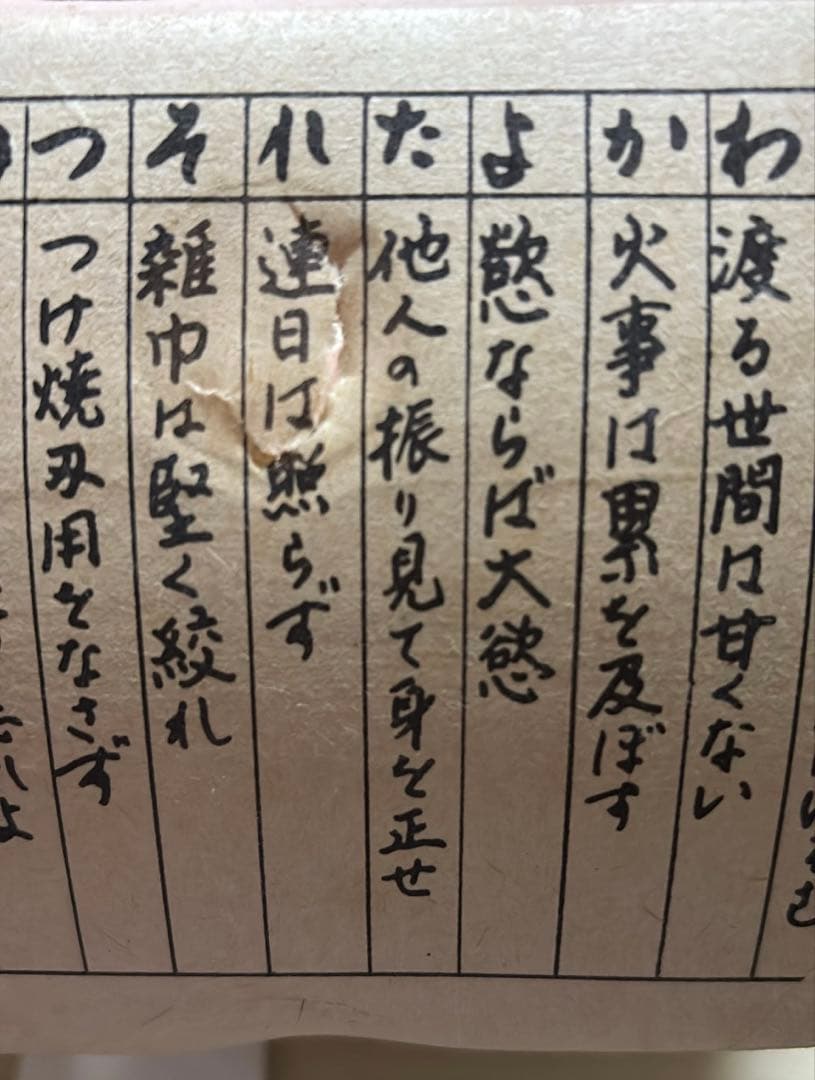 わ
渡る世間は甘くない
か
火事は累を及ぼす
よ
慾ならば大慾
た
他人の振り見て身を正せ
れ
連日は照らず
そ
雑巾は堅く絞れ
つ
つけ焼刃用をなさず